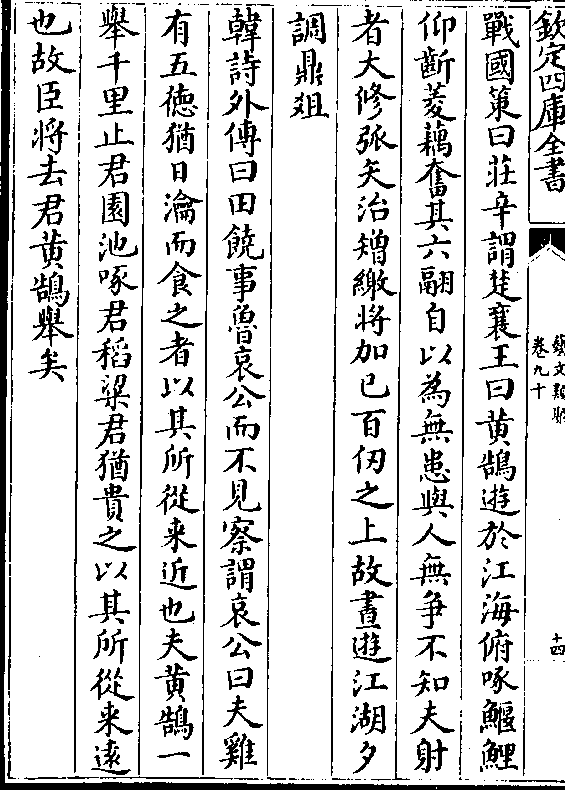 欽定四庫全書
藝文類聚
卷九十
十四
戰國策曰莊辛謂楚襄王曰黄鵠逰於江海俯啄鰋鯉
仰斷菱藕奮其六翮自以為無患與人無争不知夫射
者大修弧矢治矰繳將加已百仞之上故晝逰江湖夕
調鼎爼
韓詩外傳曰田饒事魯哀公而不見察謂哀公曰夫雞
有五徳猶日瀹而食之者以其所從来近也夫黄鵠一
舉千里止君園池啄君稻粱君猶貴之以其所從来逺
也故臣將去君黄鵠舉矣